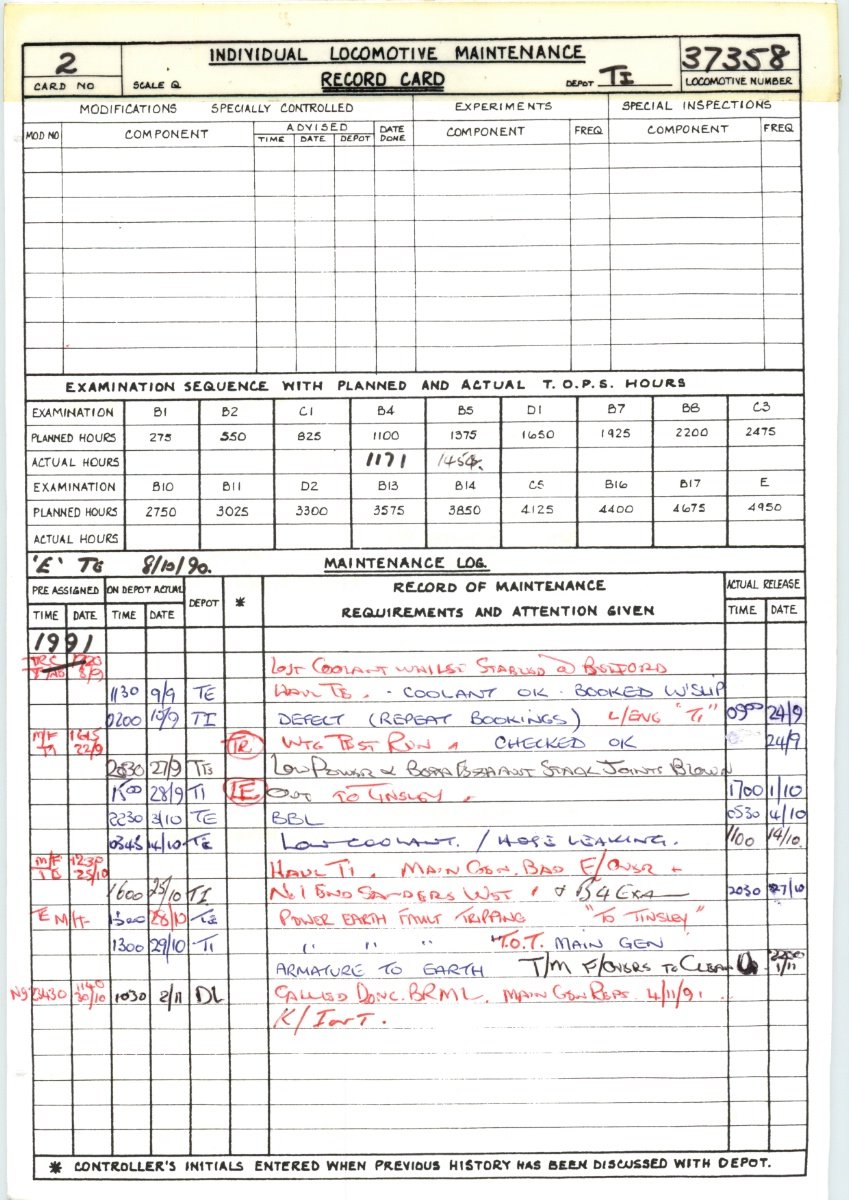 2 INDIVIDUAL LOCOMOTIVE MAINTENANCE 37358
CARD NO SCALE Q RECORD CARD DEPOT TI LOCOMOTIVE NUMBER
MODIFICATIONS SPECIALLY CONTROLLED EXPERIMENTS SPECIAL INSPECTIONS
MOD NO COMPONENT ADVISED DATE DONE COMPONENT FREQ COMPONENT FREQ
TIME DATE DEPOT
EXAMINATION SEQUENCE WITH PLANNED AND ACTUAL T.O.P.S. HOURS
EXAMINATION B1 B2 C1 B4 B5 D1 B7 B8 C3
PLANNED HOURS 275 550 825 1100 1375 1650 1925 2200 2475
ACTUAL HOURS 1171
EXAMINATION B10 B11 D2 B13 B14 C5 B16 B17 E
PLANNED HOURS 2750 3025 3300 3575 3850 4125 4400 4675 4950
ACTUAL HOURS
'E' TE 8/10/90. MAINTENANCE LOG.
PRE ASSIGNED ON DEPOT ACTUAL DEPOT * RECORD OF MAINTENANCE ACTUAL RELEASE
TIME DATE TIME DATE REQUIREMENTS AND ATTENTION GIVEN TIME DATE
1991
8/9 LOST COOLANT WHILST STABLED @
1130 9/9 TE HAUL TE. - COOLANT OK - BOOKED W'SLIP
0200 10/9 TI DEFECT (REPEAT BOOKINGS) L/ENG "TI" 0900 24/9
M/F TI 1615 22/9 TR WTG TEST RUN CHECKED OK 24/9
27/9 TE LOW POWER & STACK JOINTS BLOWN
1500 28/9 TI TO TINSLEY. 1700 1/10
2230 3/10 TE BBL 0530 4/10
0345 TE LOW COOLANT. / HOSE LEAKING. 1100 14/10
M/F TE 1230 25/10 HAUL TI. MAIN GEN. BAD F/OVSR +
1600 25/10 TI No 1 END SANDERS & B4 EXA 2030 27/10
28/10 TE POWER EARTH FAULT TRIPPING "TO TINSLEY"
1300 29/10 TI " " " "T.O.T. MAIN GEN
ARMATURE TO EARTH T/M F/OVSRS TO CLEAN 1/11
1140 30/10 1030 2/11 DL CALLED DONC. BRML. MAIN GEN REPS. 4/11/91
* CONTROLLER'S INITIALS ENTERED WHEN PREVIOUS HISTORY HAS BEEN DISCUSSED WITH DEPOT.